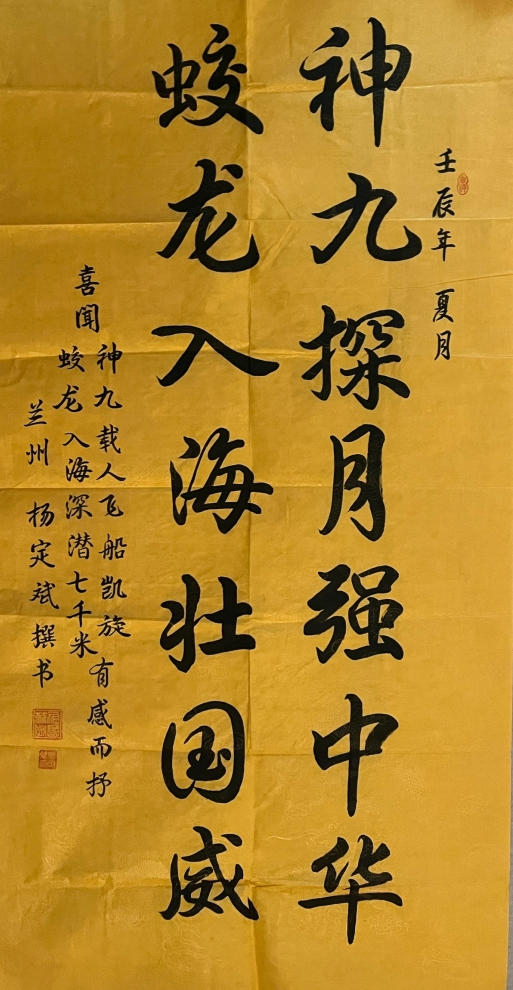 壬辰年 夏月
神九探月强中华
蛟龙入海壮国威
喜闻
神九载人飞船凯旋
蛟龙入海深潜七千米
有感而抒
兰州 杨定斌撰书